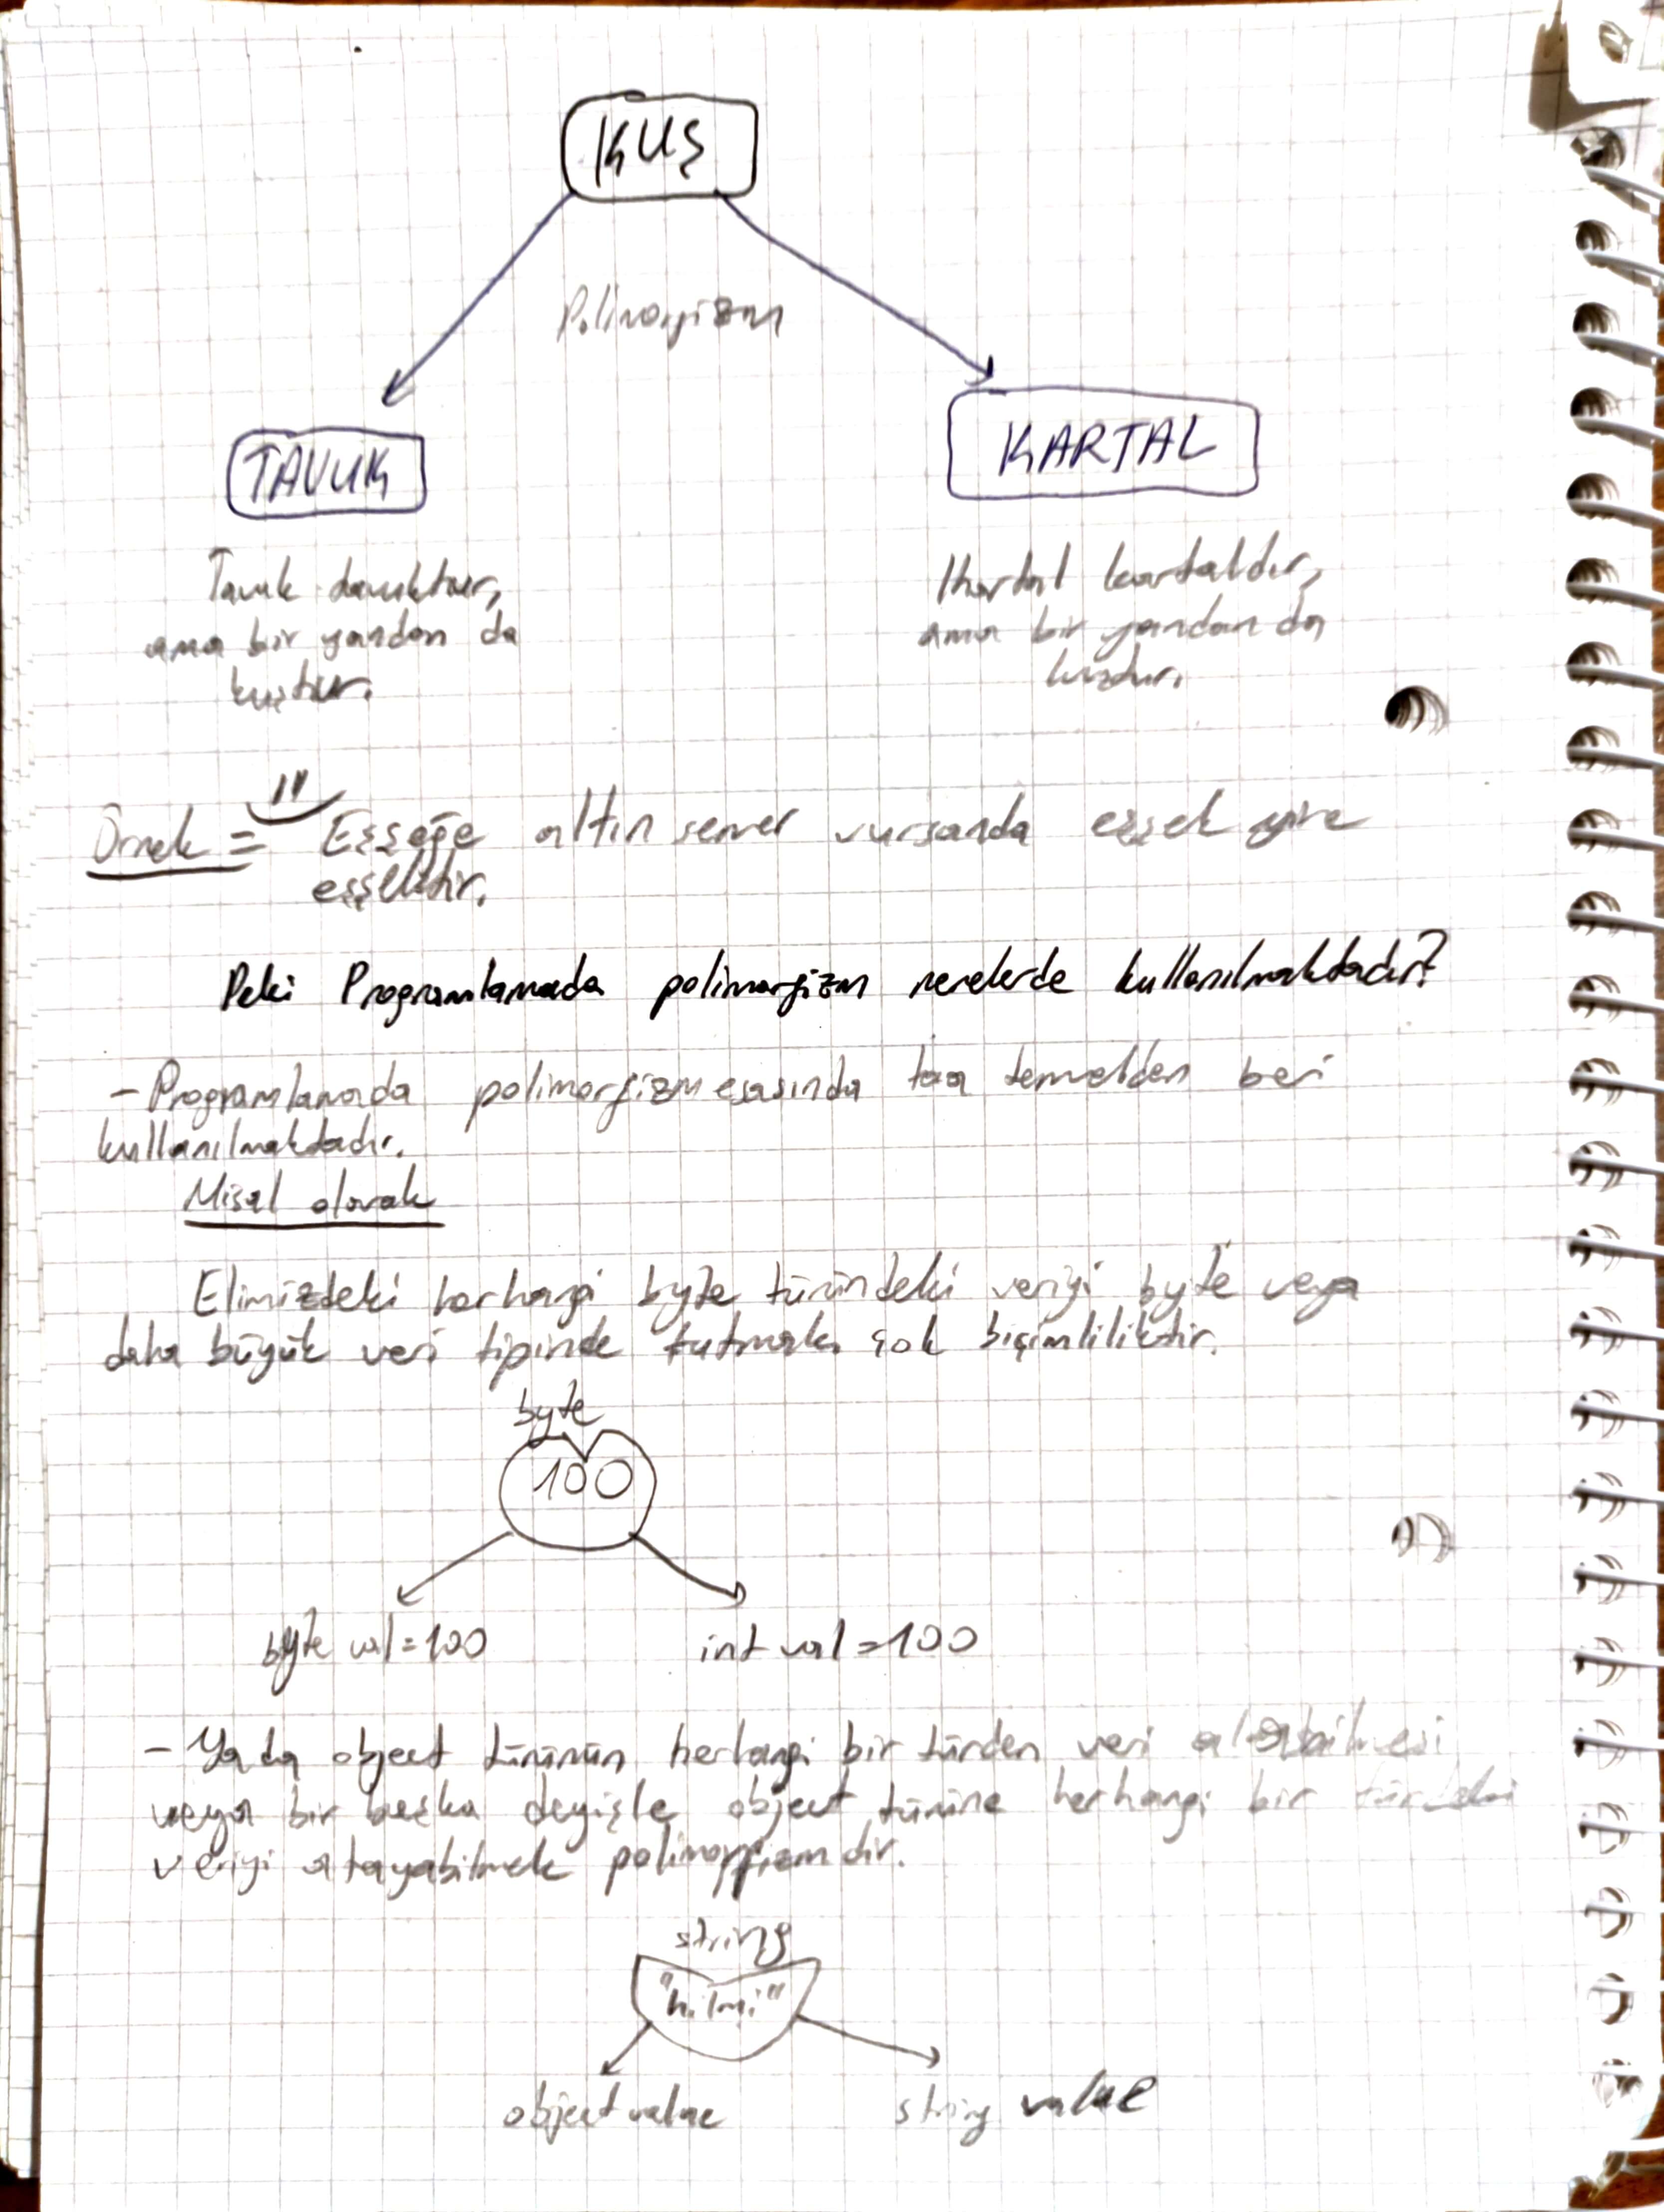 KUŞ
Polimorfizm
TAVUK
KARTAL
Tavuk tavuktur,
ama bir yandan da
kuştur.
Kartal kartaldır,
ama bir yandan da
kuştur.
Örnek = Eşşeğe altın semer vursanda eşşek yine
eşşektir.
Peki Programlamada polimorfizm nerelerde kullanılmaktadır?
- Programlamada polimorfizm esasında taa temelden beri
kullanılmaktadır.
Misal olarak
Elimizdeki herhangi byte türündeki veriyi byte veya
daha büyük veri tipinde tutmak çok biçimliliktir.
byte
100
byte val=100
int val=100
- Ya da object türünün herhangi bir türden veri alabilmesi
veya bir başka deyişle object türüne herhangi bir türdeki
veriyi atayabilmek polimorfizmdir.
string
"hilmi"
object value
string value